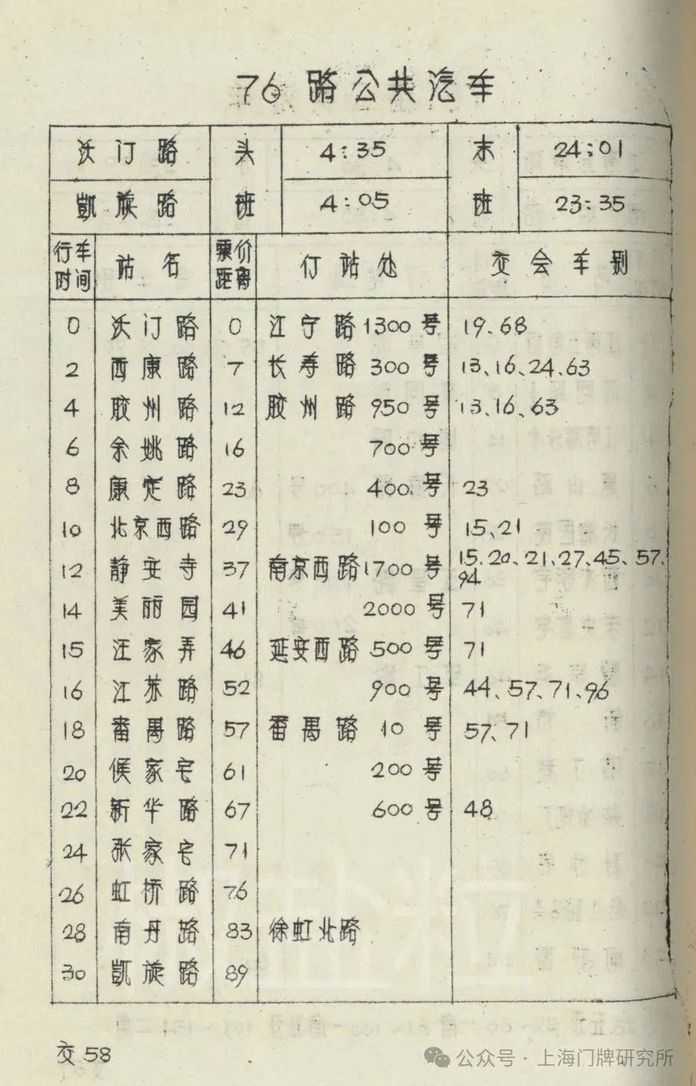 76 路公共汽车
沃订路 头 4:35 末 24:01
凯旋路 班 4:05 班 23:35
行车时间 站名 票价距离 停站处 交会车别
0 沃订路 0 江宁路1300号 19、68
2 西康路 7 长寿路 300号 13、16、24、63
4 胶州路 12 胶州路 950号 13、16、63
6 余姚路 16 700号
8 康定路 23 400号 23
10 北京西路 29 100号 15、21
12 静安寺 37 南京西路1700号 15、20、21、27、45、57、
94
14 美丽园 41 2000号 71
15 汪家弄 46 延安西路 500号 71
16 江苏路 52 900号 44、57、71、96
18 番禺路 57 番禺路 10号 57、71
20 侯家宅 61 200号
22 新华路 67 600号 48
24 张家宅 71
26 虹桥路 76
28 南丹路 83 徐虹北路
30 凯旋路 89
交 58
公众号·上海门牌研究所